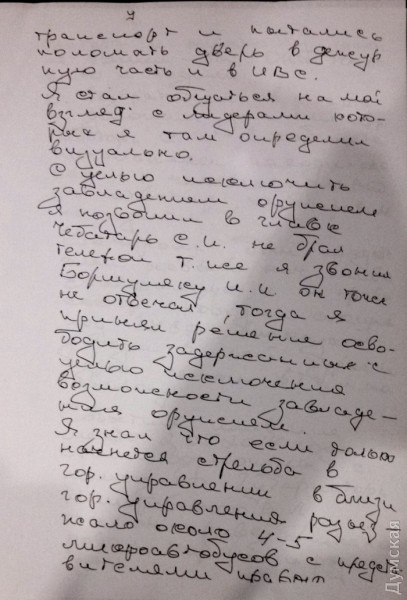 7
транспорт и пытались
поломать дверь в дежур
ную часть и в ИВС.
Я стал общаться на мой
взгляд с лидерами кото-
рых я там определил
визуально.
С целью исключить
завладением оружием
Я позвонил в главк
Чеботарь С.И. не брал
телефон т. исе я звонил
Боршуляку И.И он тоже
не отвечал, тогда я
принял решение осво-
бодить задержанных с
целью исключения
возможности завладе-
ния оружием.
Я знал что если только
начнется стрельба в
гор. управлении в близи
гор. управления разъез
жало около 4-5
микроавтобусов с предст
вителями
Думская